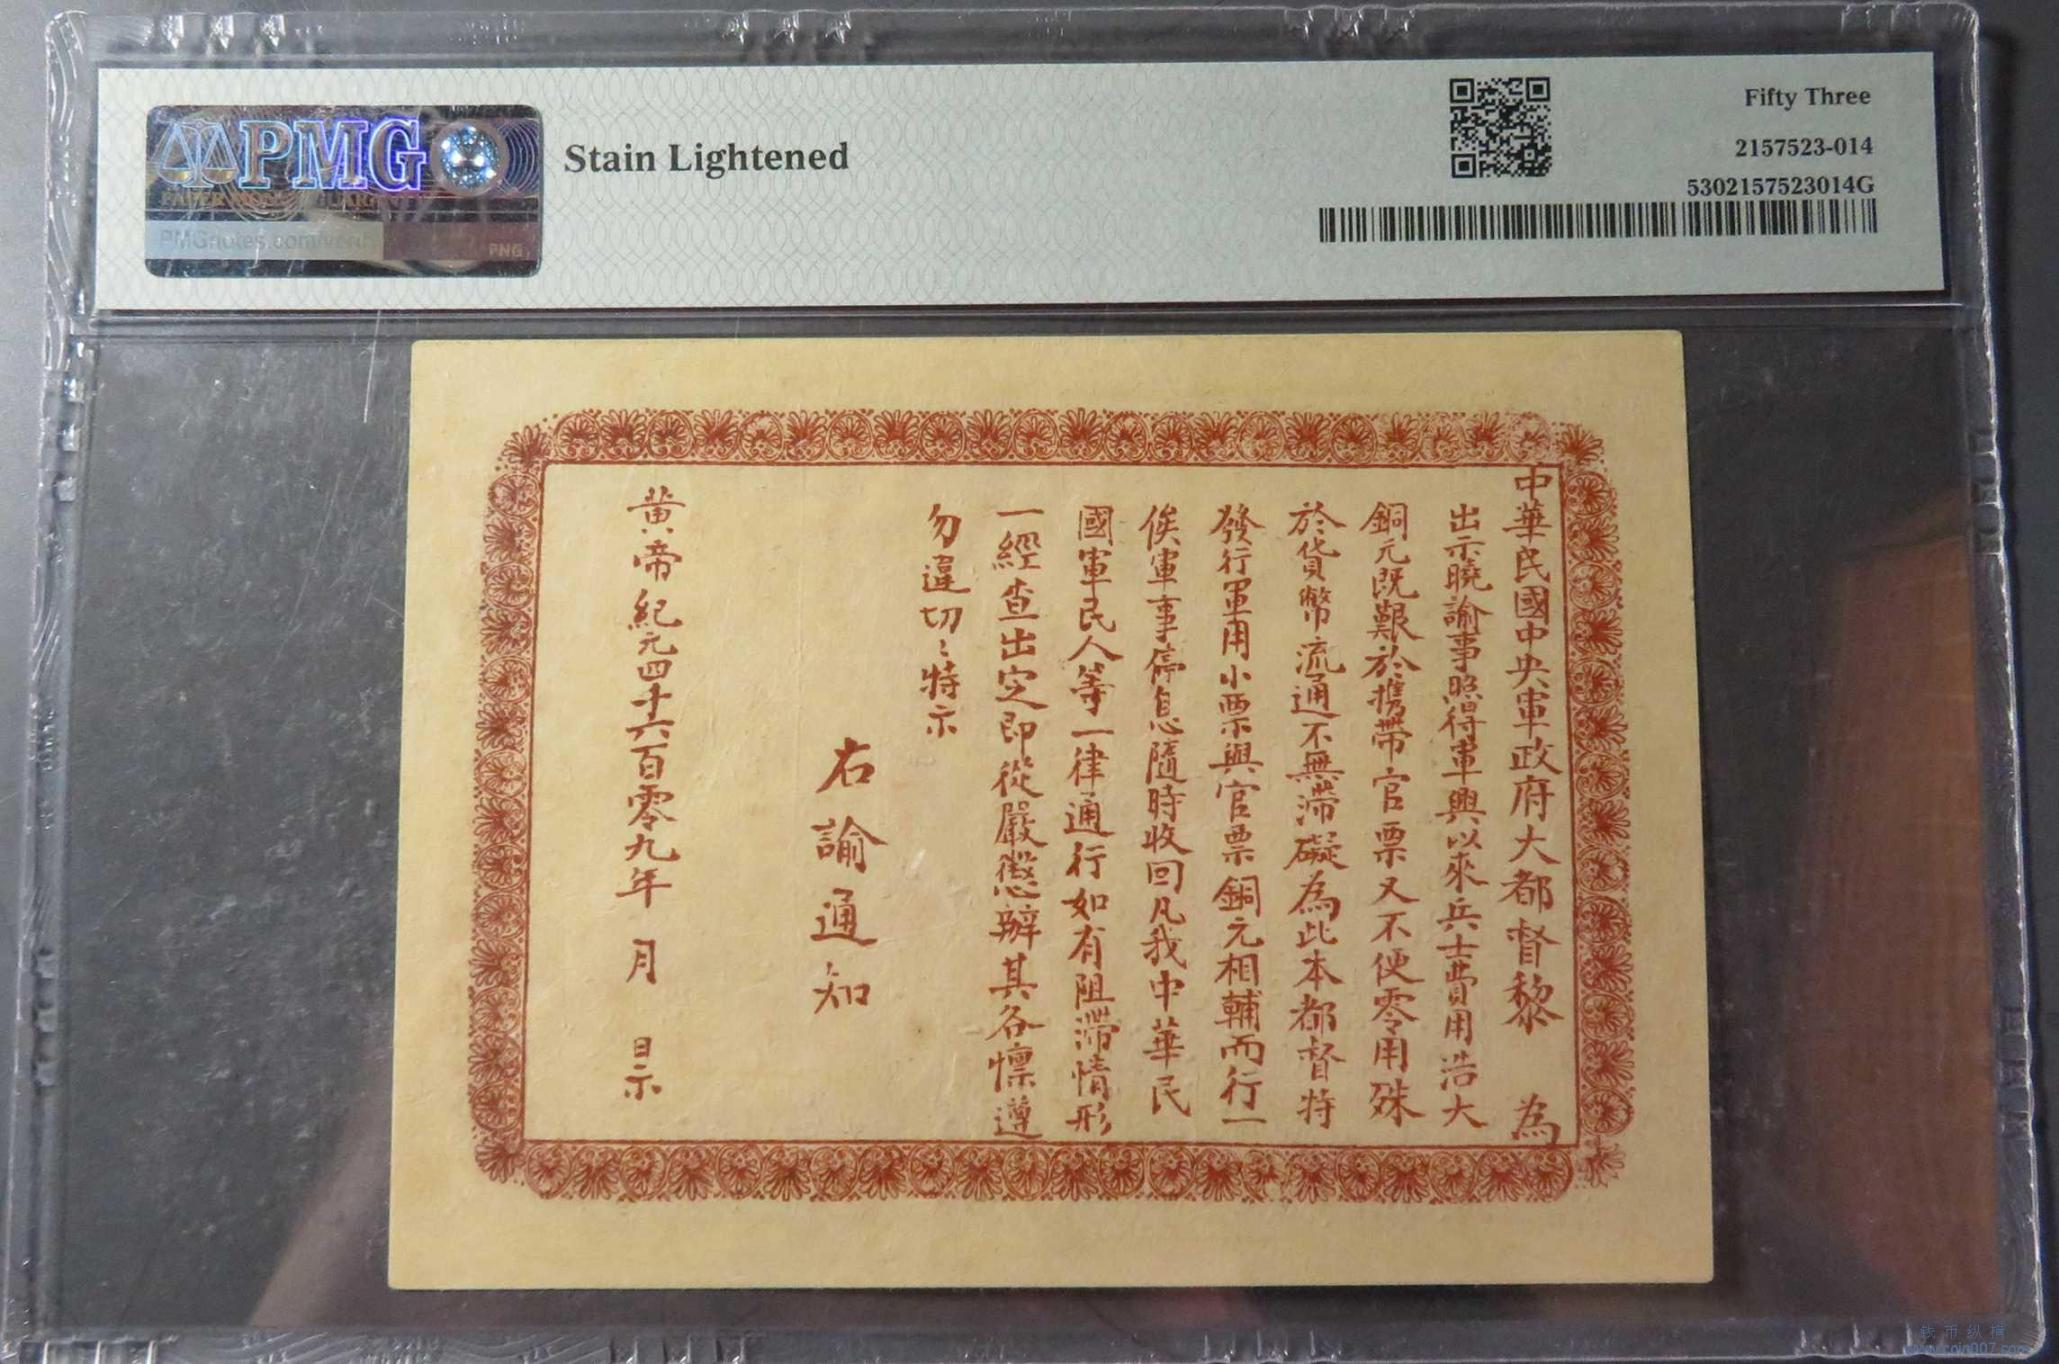 PMG
PAPER MONEY GUARANTY
PMGnotes.com/verify
PNG
Stain Lightened
Fifty Three
2157523-014
5302157523014G
中華民國中央軍政府大都督黎 為
出示曉諭事照得軍興以來兵士費用浩大
銅元既艱於攜帶官票又不便零用殊
於貨幣流通不無滯礙為此本都督特
發行軍用小票與官票銅元相輔而行一
俟軍事停息隨時收回凡我中華民
國軍民人等一律通行如有阻滯情形
一經查出定即從嚴懲辦其各懍遵
勿違切〻特示
右諭通知
黃帝紀元四千六百零九年 月 日示
钱币纵横
www.coin007.com